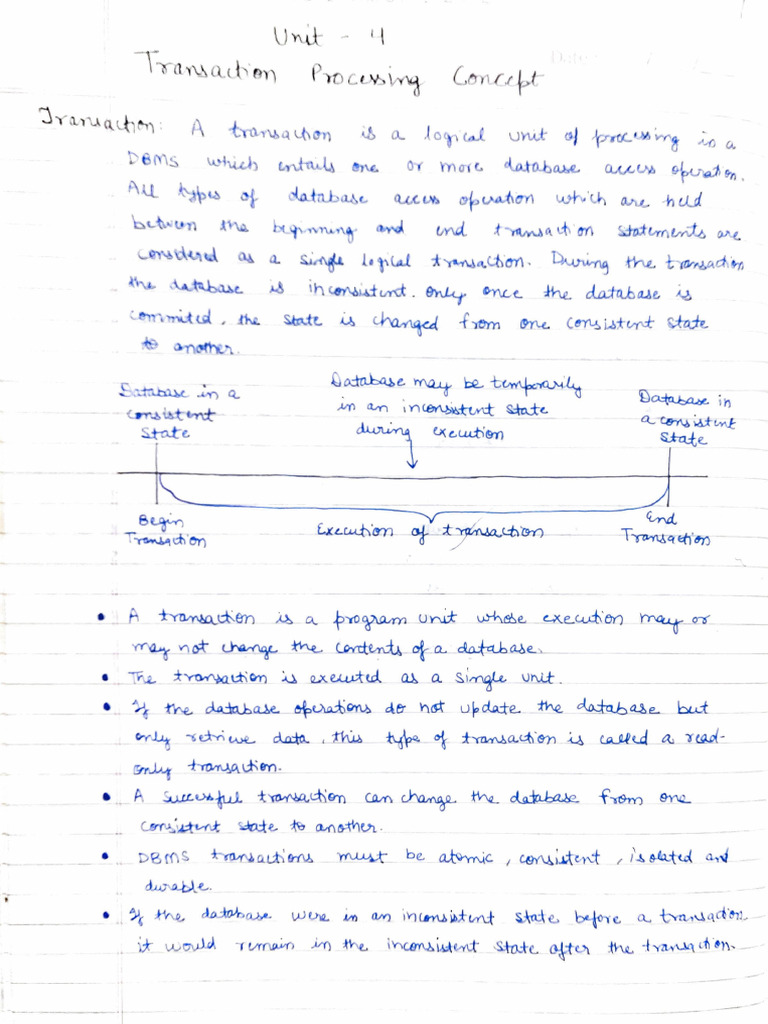 Unit - 4
Transaction Processing Concept
Transaction: A transaction is a logical unit of processing in a
DBMS which entails one or more database access operation.
All types of database access operation which are held
between the beginning and end transaction statements are
considered as a single logical transaction. During the transaction
the database is inconsistent. only once the database is
commited, the state is changed from one consistent state
to another.
Database in a
consistent
state
Database may be temporarily
in an inconsistent state
during execution
Database in
a consistent
state
Begin
Transaction
Execution of transaction
End
Transaction
• A transaction is a program unit whose execution may or
may not change the contents of a database.
• The transaction is executed as a single unit.
• If the database operations do not update the database but
only retrieve data, this type of transaction is called a read-
only transaction.
• A successful transaction can change the database from one
consistent state to another.
• DBMS transactions must be atomic, consistent, isolated and
durable.
• If the database were in an inconsistent state before a transaction
it would remain in the inconsistent state after the transaction.